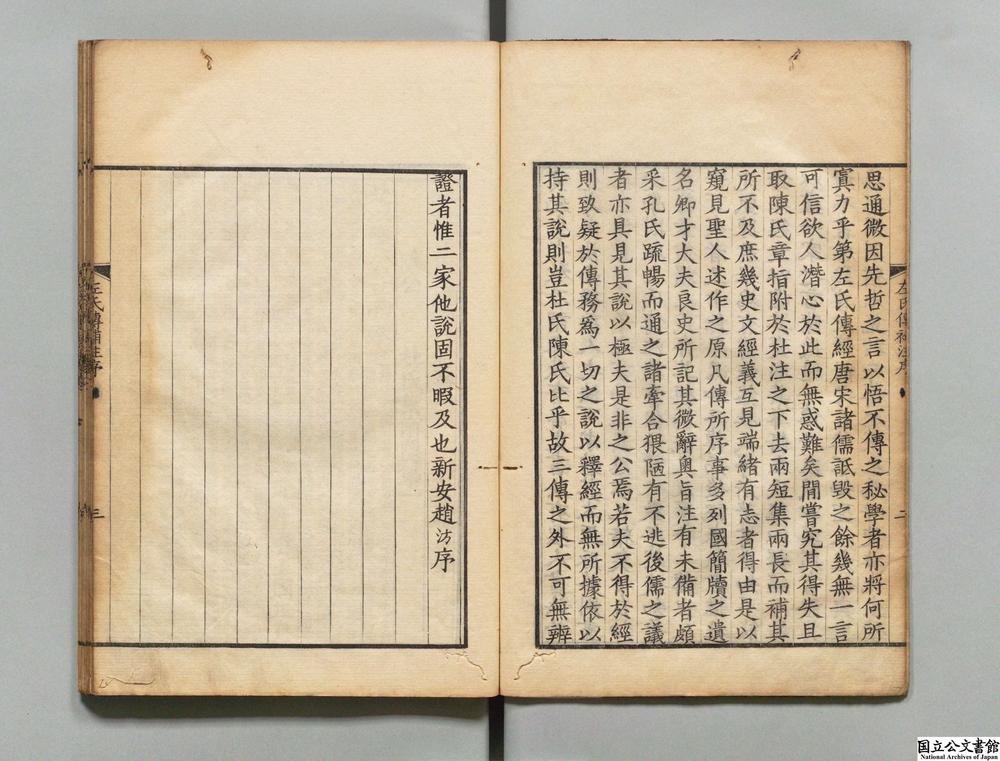 思通微因先哲之言以悟不傳之秘學者亦將何所
寘力乎第左氏傳經唐宋諸儒詆毀之餘幾無一言
可信欲人濳心於此而無惑難矣間嘗究其得失且
取陳氏章指附於杜注之下去兩短集兩長而補其
所不及庶幾史文經義互見端緒有志者得由是以
窺見聖人述作之原凡傳所序事多列國簡牘之遺
名卿才大夫良史所記其微辭奥旨注有未備者頗
采孔氏疏暢而通之諸牽合猥陋有不逃後儒之議
者亦具見其說以極夫是非之公焉若夫不得於經
則致疑於傳務爲一切之說以釋經而無所據依以
持其說則豈杜氏陳氏比乎故三傳之外不可無辨
左氏傳補注序
二
證者惟二家他說固不暇及也新安趙汸序
左氏傳補注序
三
国立公文書館
National Archives of Japan